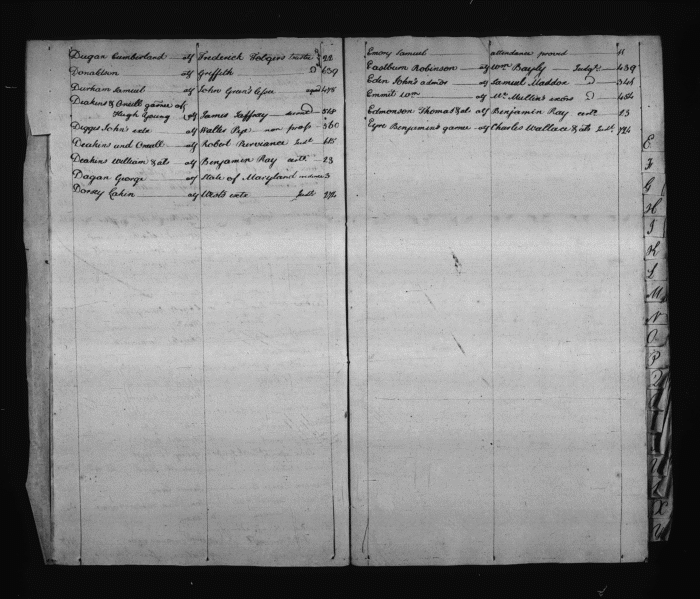 Dugan Cumberland ats Frederick Folgers 22
Donaldson ats Griffith D 639
Durham Samuel ats John Gran's 478
Deakins & Oneill garnee of
Hugh Young ats James Jaffray
Diggs John's exte ats Walter Pye non pross 360
Deakins and Oneill ats Robert Purviance Judt 615
Deakins William & als ats Benjamin Ray certi 23
Dagan George ats State of Maryland 3
Dorsey Cakin ats exte Judt 274
Emory Samuel attendance proved
Eastburn Robinson ats Wm Bayly Judgt 439
Eden John's admor ats Samuel Maddox D 348
Emmit Wm ats Mc Mullin's exors D 484
Edmonson Thomas & als ats Benjamin Ray certi 23
Eyre Benjamin's garnee ats Charles Wallace & als Judt 724
E
F
G
H
I
K
L
M
N
O
P